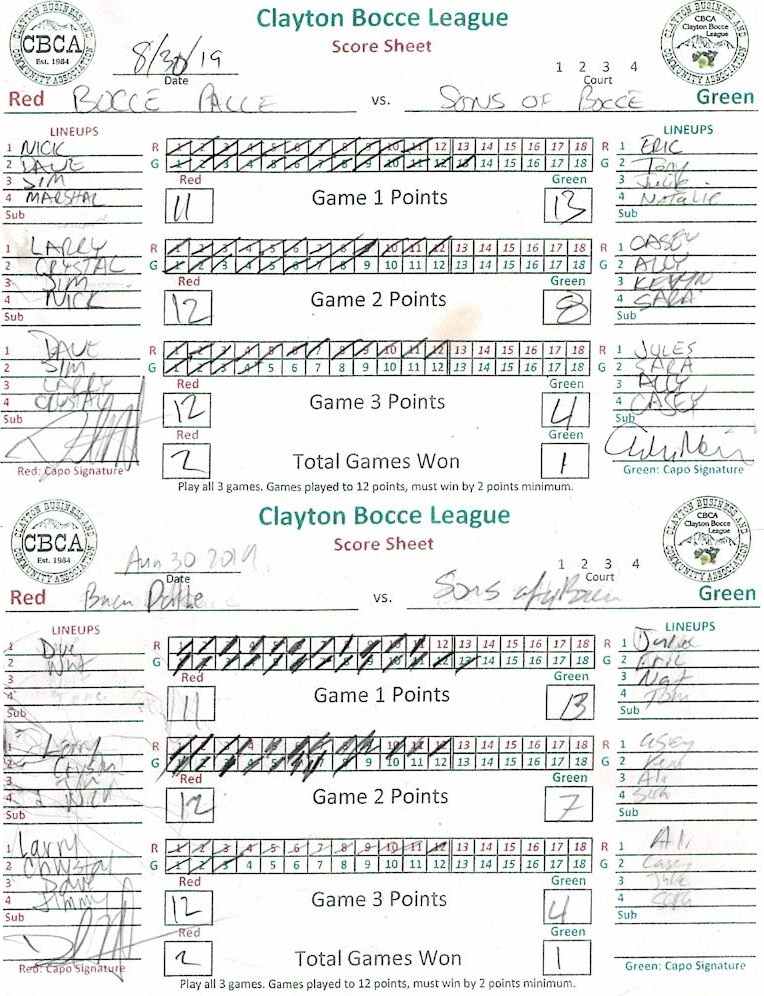 Clayton Bocce League
Score Sheet
CBCA
Est. 1984
CLAYTON BUSINESS AND
COMMUNITY ASSOCIATION
CBCA
Clayton Bocce
League
8/30/19
Date
1 2 3 4
Court
Red BOCCE PALLE vs. SONS OF BOCCE Green
LINEUPS
LINEUPS
1 NICK R 1 2 3 4 5 6 7 8 9 10 11 12 13 14 15 16 17 18 R 1 ERIC
2 DAVE G 1 2 3 4 5 6 7 8 9 10 11 12 13 14 15 16 17 18 G 2 Tony
3 JIM Red Green 3
4 MARSHAL 11 Game 1 Points 13 4 NATALIE
Sub Sub
1 LARRY R 1 2 3 4 5 6 7 8 9 10 11 12 13 14 15 16 17 18 R 1 CASEY
2 CRYSTAL G 1 2 3 4 5 6 7 8 9 10 11 12 13 14 15 16 17 18 G 2 ALLY
3 JIM Red Green 3 KEVIN
4 NICK 12 Game 2 Points 8 4 SARA
Sub Sub
1 DAVE R 1 2 3 4 5 6 7 8 9 10 11 12 13 14 15 16 17 18 R 1 JULES
2 JIM G 1 2 3 4 5 6 7 8 9 10 11 12 13 14 15 16 17 18 G 2 SARA
3 LARRY Red Green 3 ALLY
4 CRYSTAL 12 Game 3 Points 4 4 CASEY
Sub Red Green Sub
2 Total Games Won 1
Red: Capo Signature Green: Capo Signature
Play all 3 games. Games played to 12 points, must win by 2 points minimum.
Clayton Bocce League
Score Sheet
CBCA
Est. 1984
CLAYTON BUSINESS AND
COMMUNITY ASSOCIATION
CBCA
Clayton Bocce
League
Aug 30 2019
Date
1 2 3 4
Court
Red vs. Sons of Green
LINEUPS
LINEUPS
1 R 1 2 3 4 5 6 7 8 9 10 11 12 13 14 15 16 17 18 R 1 Julie
2 G 1 2 3 4 5 6 7 8 9 10 11 12 13 14 15 16 17 18 G 2 Eric
3 Red Green 3 Nat
4 11 Game 1 Points 13 4 Tom
Sub Sub
1 Larry R 1 2 3 4 5 6 7 8 9 10 11 12 13 14 15 16 17 18 R 1 Casey
2 G 1 2 3 4 5 6 7 8 9 10 11 12 13 14 15 16 17 18 G 2
3 Red Green 3 Ali
4 12 Game 2 Points 7 4
Sub Sub
1 Larry R 1 2 3 4 5 6 7 8 9 10 11 12 13 14 15 16 17 18 R 1 Ali
2 Crystal G 1 2 3 4 5 6 7 8 9 10 11 12 13 14 15 16 17 18 G 2 Casey
3 Dave Red Green 3
4 Jimmy 12 Game 3 Points 4 4
Sub Red Green Sub
2 Total Games Won 1
Red: Capo Signature Green: Capo Signature
Play all 3 games. Games played to 12 points, must win by 2 points minimum.